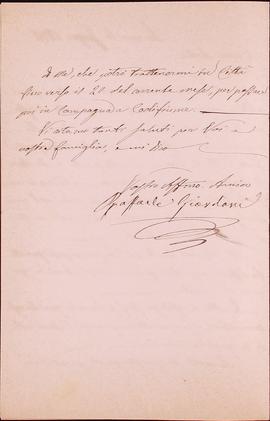 di me, che potrò trattenermi in Città
fino verso il 20 del corrente mese, per passare
poi in Campagna a
tanti saluti per Voi e
vostra famiglia, e mi dico
Vostro Affmo. Amico
Raffaele Giordani